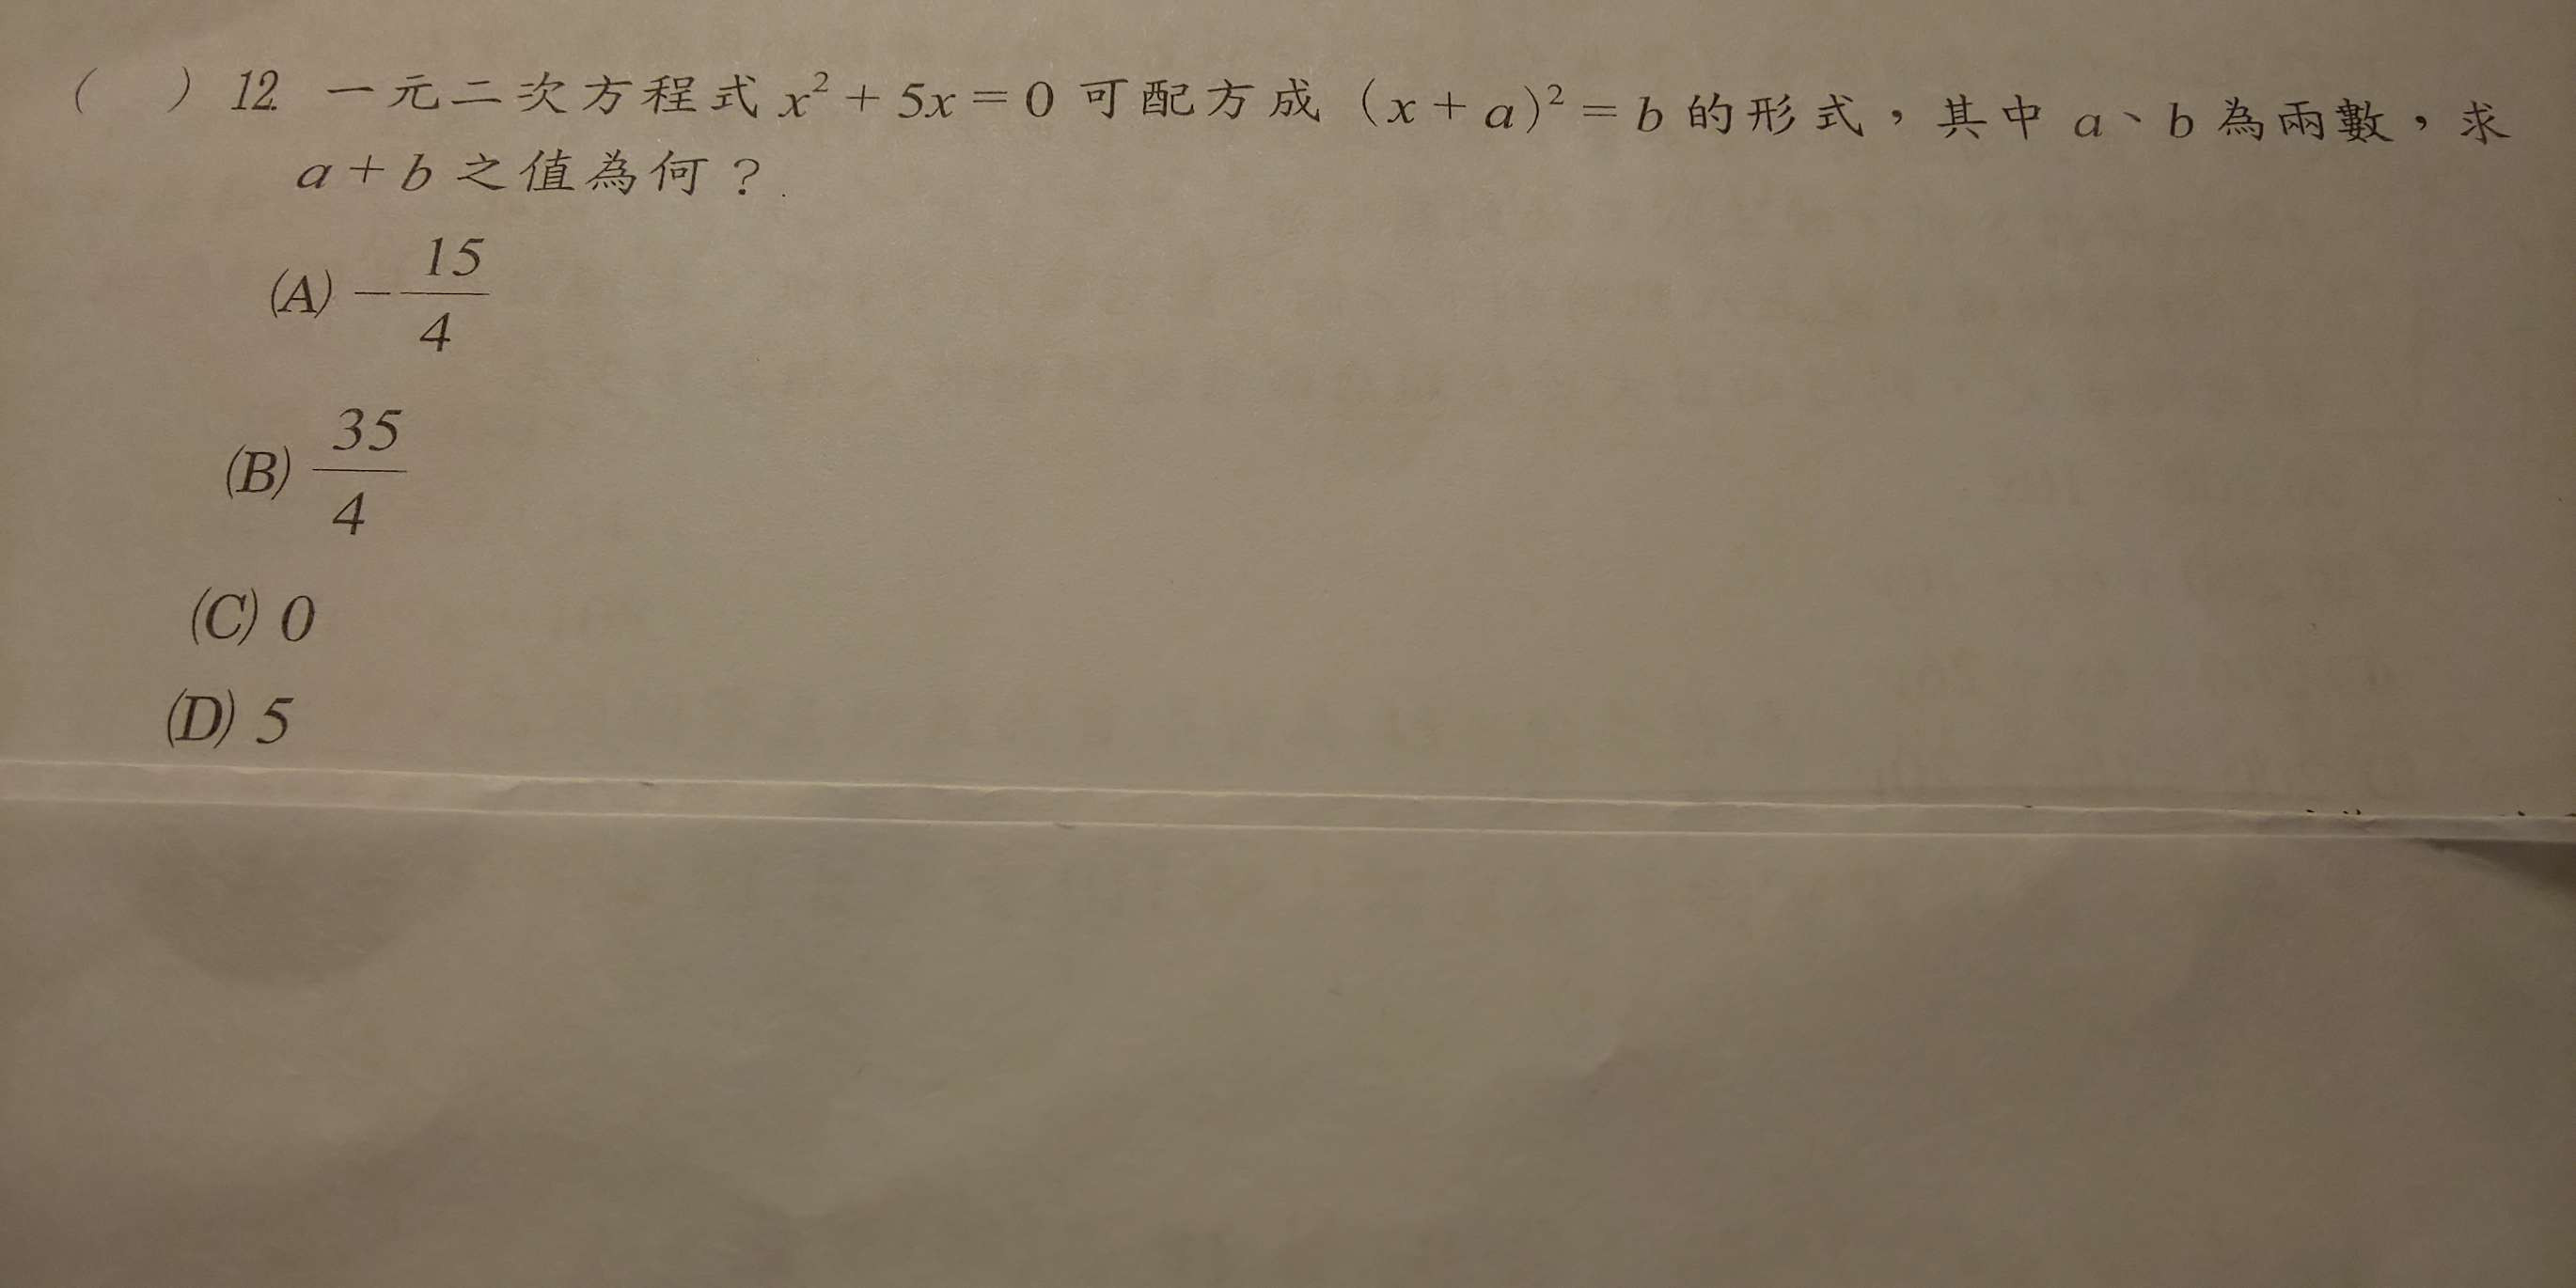 ( ) 12. 一元二次方程式 x² + 5x = 0 可配方成 (x + a)² = b 的形式，其中 a、b 為兩數，求
a + b 之值為何？
(A) -15/4
(B) 35/4
(C) 0
(D) 5